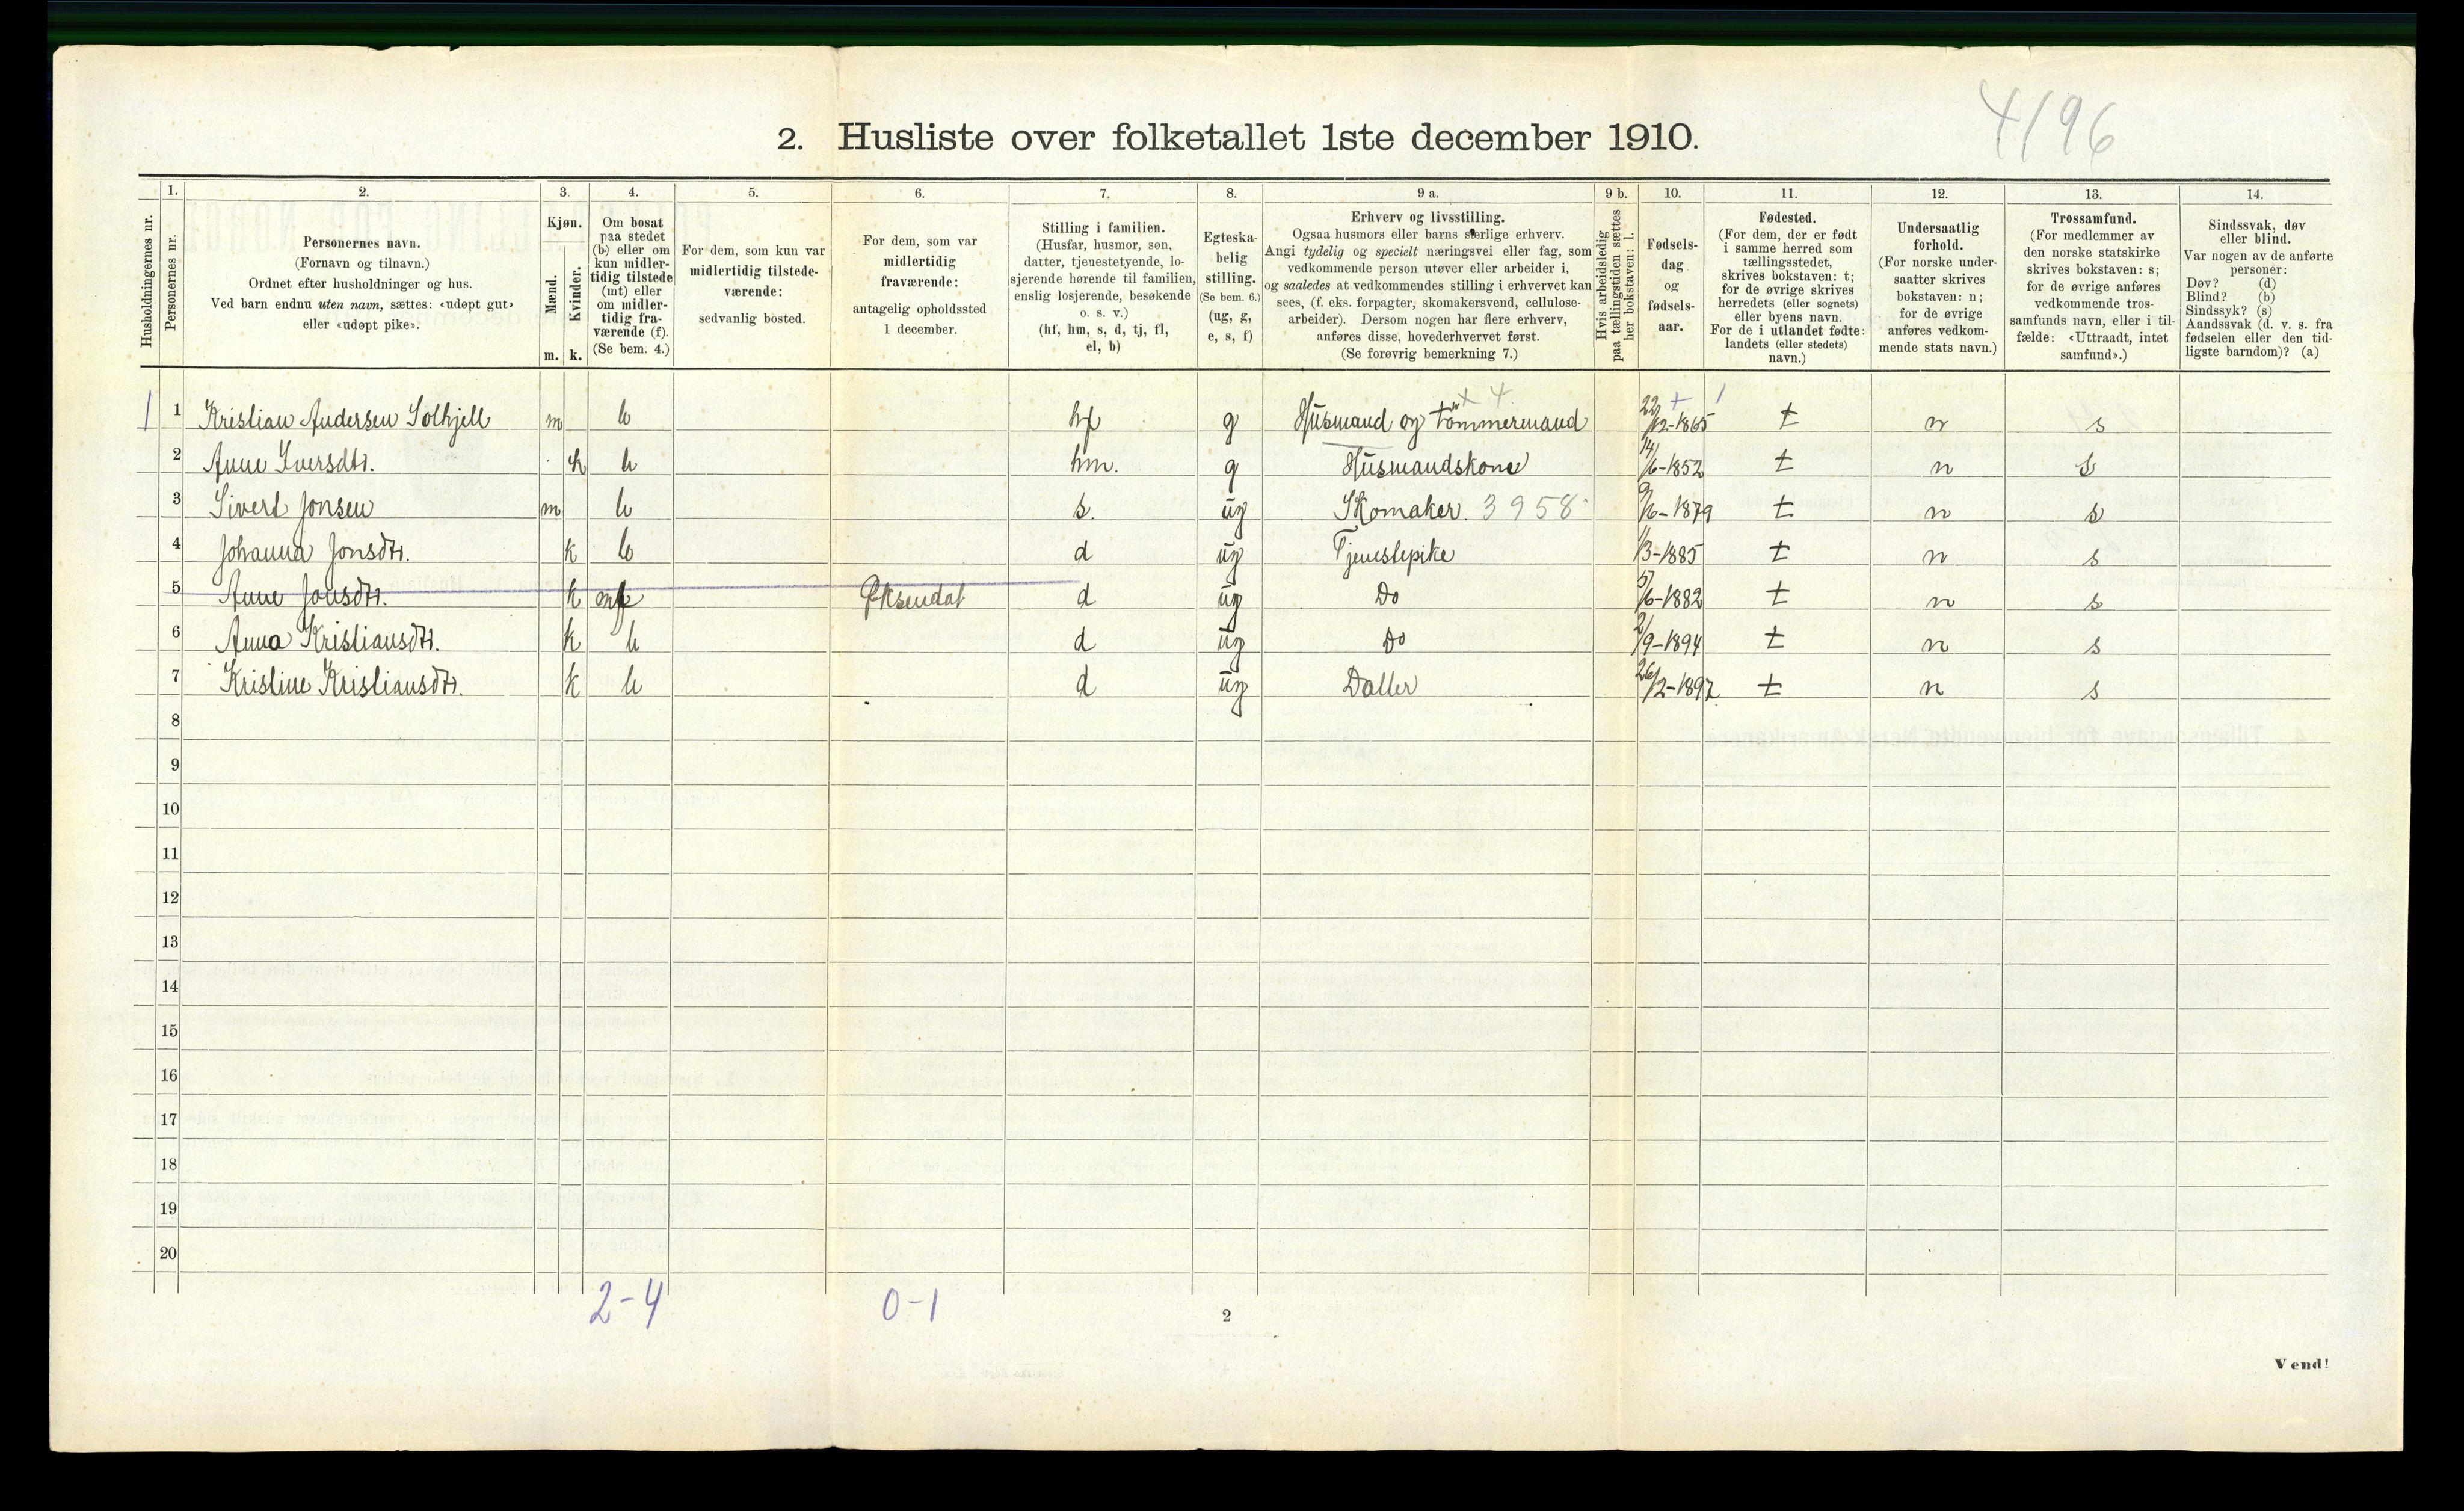 4196
2. Husliste over folketallet 1ste december 1910.
Husholdningernes nr.
1.
Personernes nr.
2.
Personernes navn.
(Fornavn og tilnavn.)
Ordnet efter husholdninger og hus.
Ved barn endnu uten navn, sættes: «udøpt gut»
eller «udøpt pike».
3.
Kjøn.
Mænd.
Kvinder.
m. k.
4.
Om bosat
paa stedet
(b) eller om
kun midler-
tidig tilstede
(mt) eller
om midler-
tidig fra-
værende (f).
(Se bem. 4.)
5.
For dem, som kun var
midlertidig tilstede-
værende:
sedvanlig bosted.
6.
For dem, som var
midlertidig
fraværende:
antagelig opholdssted
1 december.
7.
Stilling i familien.
(Husfar, husmor, søn,
datter, tjenestetyende, lo-
sjerende hørende til familien,
enslig losjerende, besøkende
o. s. v.)
(hf, hm, s, d, tj, fl,
el, b)
8.
Egteska-
belig
stilling.
(Se bem. 6.)
(ug, g,
e, s, f)
9 a.
Erhverv og livsstilling.
Ogsaa husmors eller barns særlige erhverv.
Angi tydelig og specielt næringsvei eller fag, som
vedkommende person utøver eller arbeider i,
og saaledes at vedkommendes stilling i erhvervet kan
sees, (f. eks. forpagter, skomakersvend, cellulose-
arbeider). Dersom nogen har flere erhverv,
anføres disse, hovederhvervet først.
(Se forøvrig bemerkning 7.)
9 b.
Hvis arbeidsledig
paa tællingstiden sættes
her bokstaven: l.
10.
Fødsels-
dag
og
fødsels-
aar.
11.
Fødested.
(For dem, der er født
i samme herred som
tællingsstedet,
skrives bokstaven: t;
for de øvrige skrives
herredets (eller sognets)
eller byens navn.
For de i utlandet fødte:
landets (eller stedets)
navn.)
12.
Undersaatlig
forhold.
(For norske under-
saatter skrives
bokstaven: n;
for de øvrige
anføres vedkom-
mende stats navn.)
13.
Trossamfund.
(For medlemmer av
den norske statskirke
skrives bokstaven: s;
for de øvrige anføres
vedkommende tros-
samfunds navn, eller i til-
fælde: «Uttraadt, intet
samfund».)
14.
Sindssvak, døv
eller blind.
Var nogen av de anførte
personer:
Døv? (d)
Blind? (b)
Sindssyk? (s)
Aandssvak (d. v. s. fra
fødselen eller den tid-
ligste barndom)? (a)
x 4 + 1
1 1 Kristian Andersen Solhjell m b hf g Husmand og tømmermand 22/12-1865 t n s
2 Anne Iversdtr. k b hm. g Husmandskone 14/6-1852 t n s
3 Sivert Jonsen m b s. ug Skomaker. 3958 9/6-1879 t n s
4 Johanna Jonsdtr. k b d ug Tjenestepike 1/3-1885 t n s
5 Anne Jonsdtr. k f Øksendal d ug Do 5/6-1882 t n s
6 Anna Kristiansdtr. k b d ug Do 2/9-1894 t n s
7 Kristine Kristiansdtr. k b d ug Datter 26/2-1897 t n s
8
9
10
11
12
13
14
15
16
17
18
19
20
2-4 0-1
2
Vend!